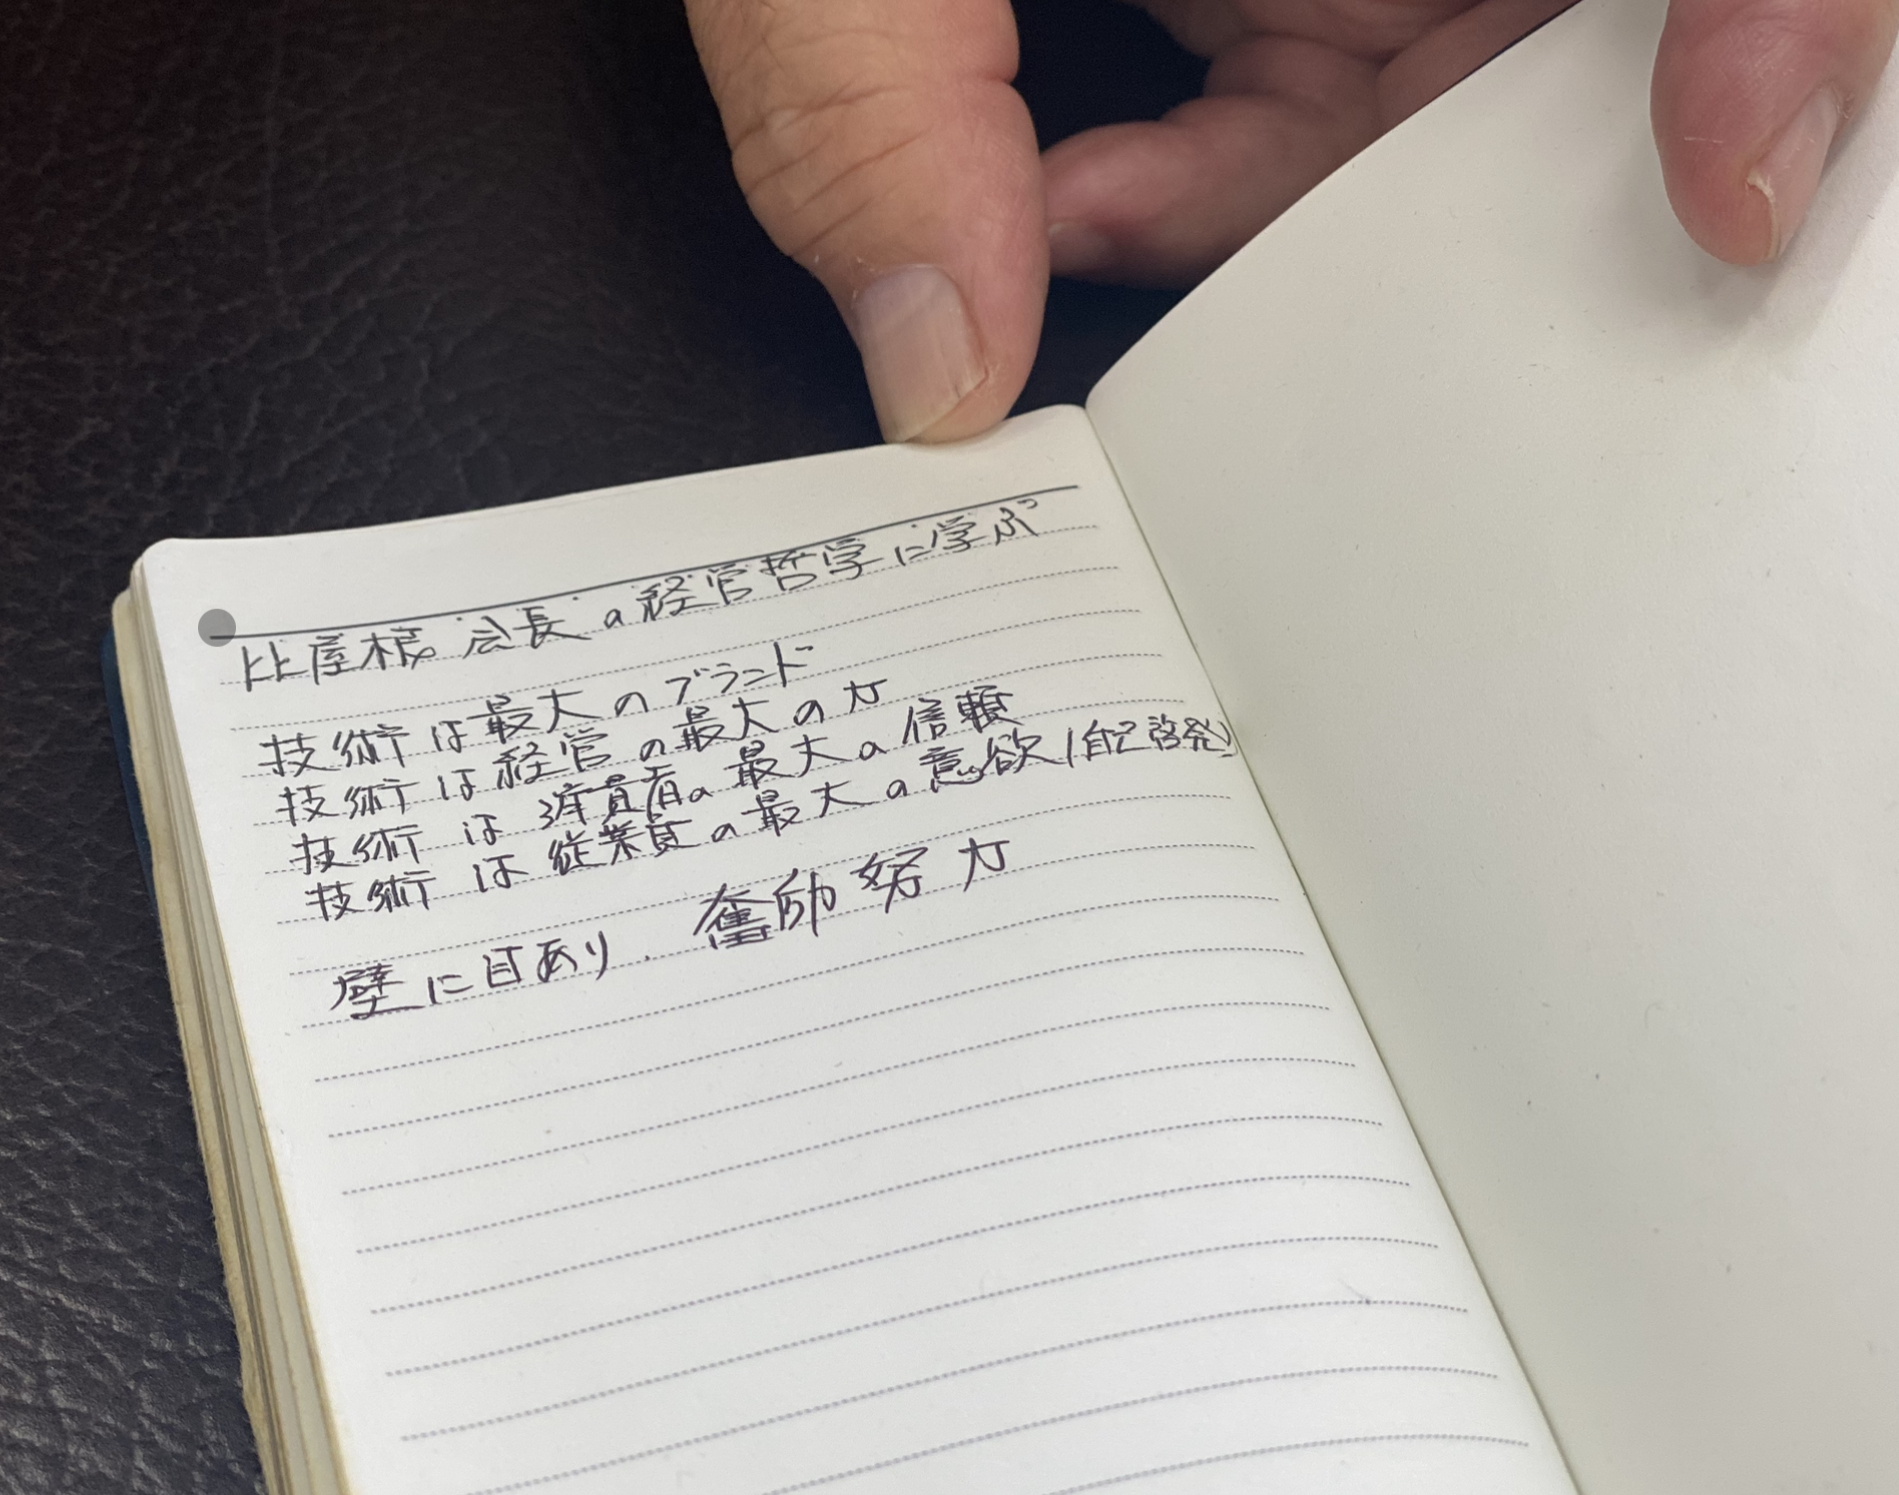 比屋根会長の経営哲学に学ぶ
技術は最大のブランド
技術は経営の最大の力
技術は消費者の最大の信頼
技術は従業員の最大の意欲(自己啓発)
壁に目あり. 奮励努力